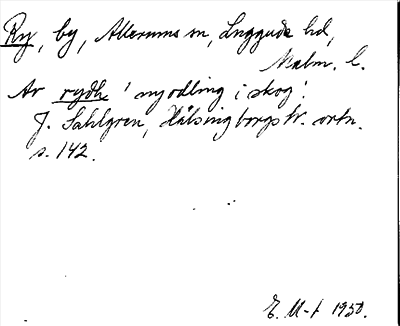 Ry, by, Allerums sn, Luggude hd,
Malm. l.
Av rydhe 'nyodling i skog'.
J. Sahlgren, Hälsingborgstr. ortn.
s. 142.
1950.